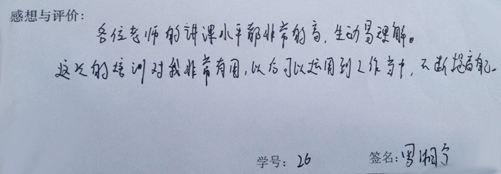 感想与评价:
各位老师的讲课水平都非常的高,生动易理解。
这次的培训对我非常有用,以后可以运用到工作当中,不断提高自己。
学号: 26 签名: